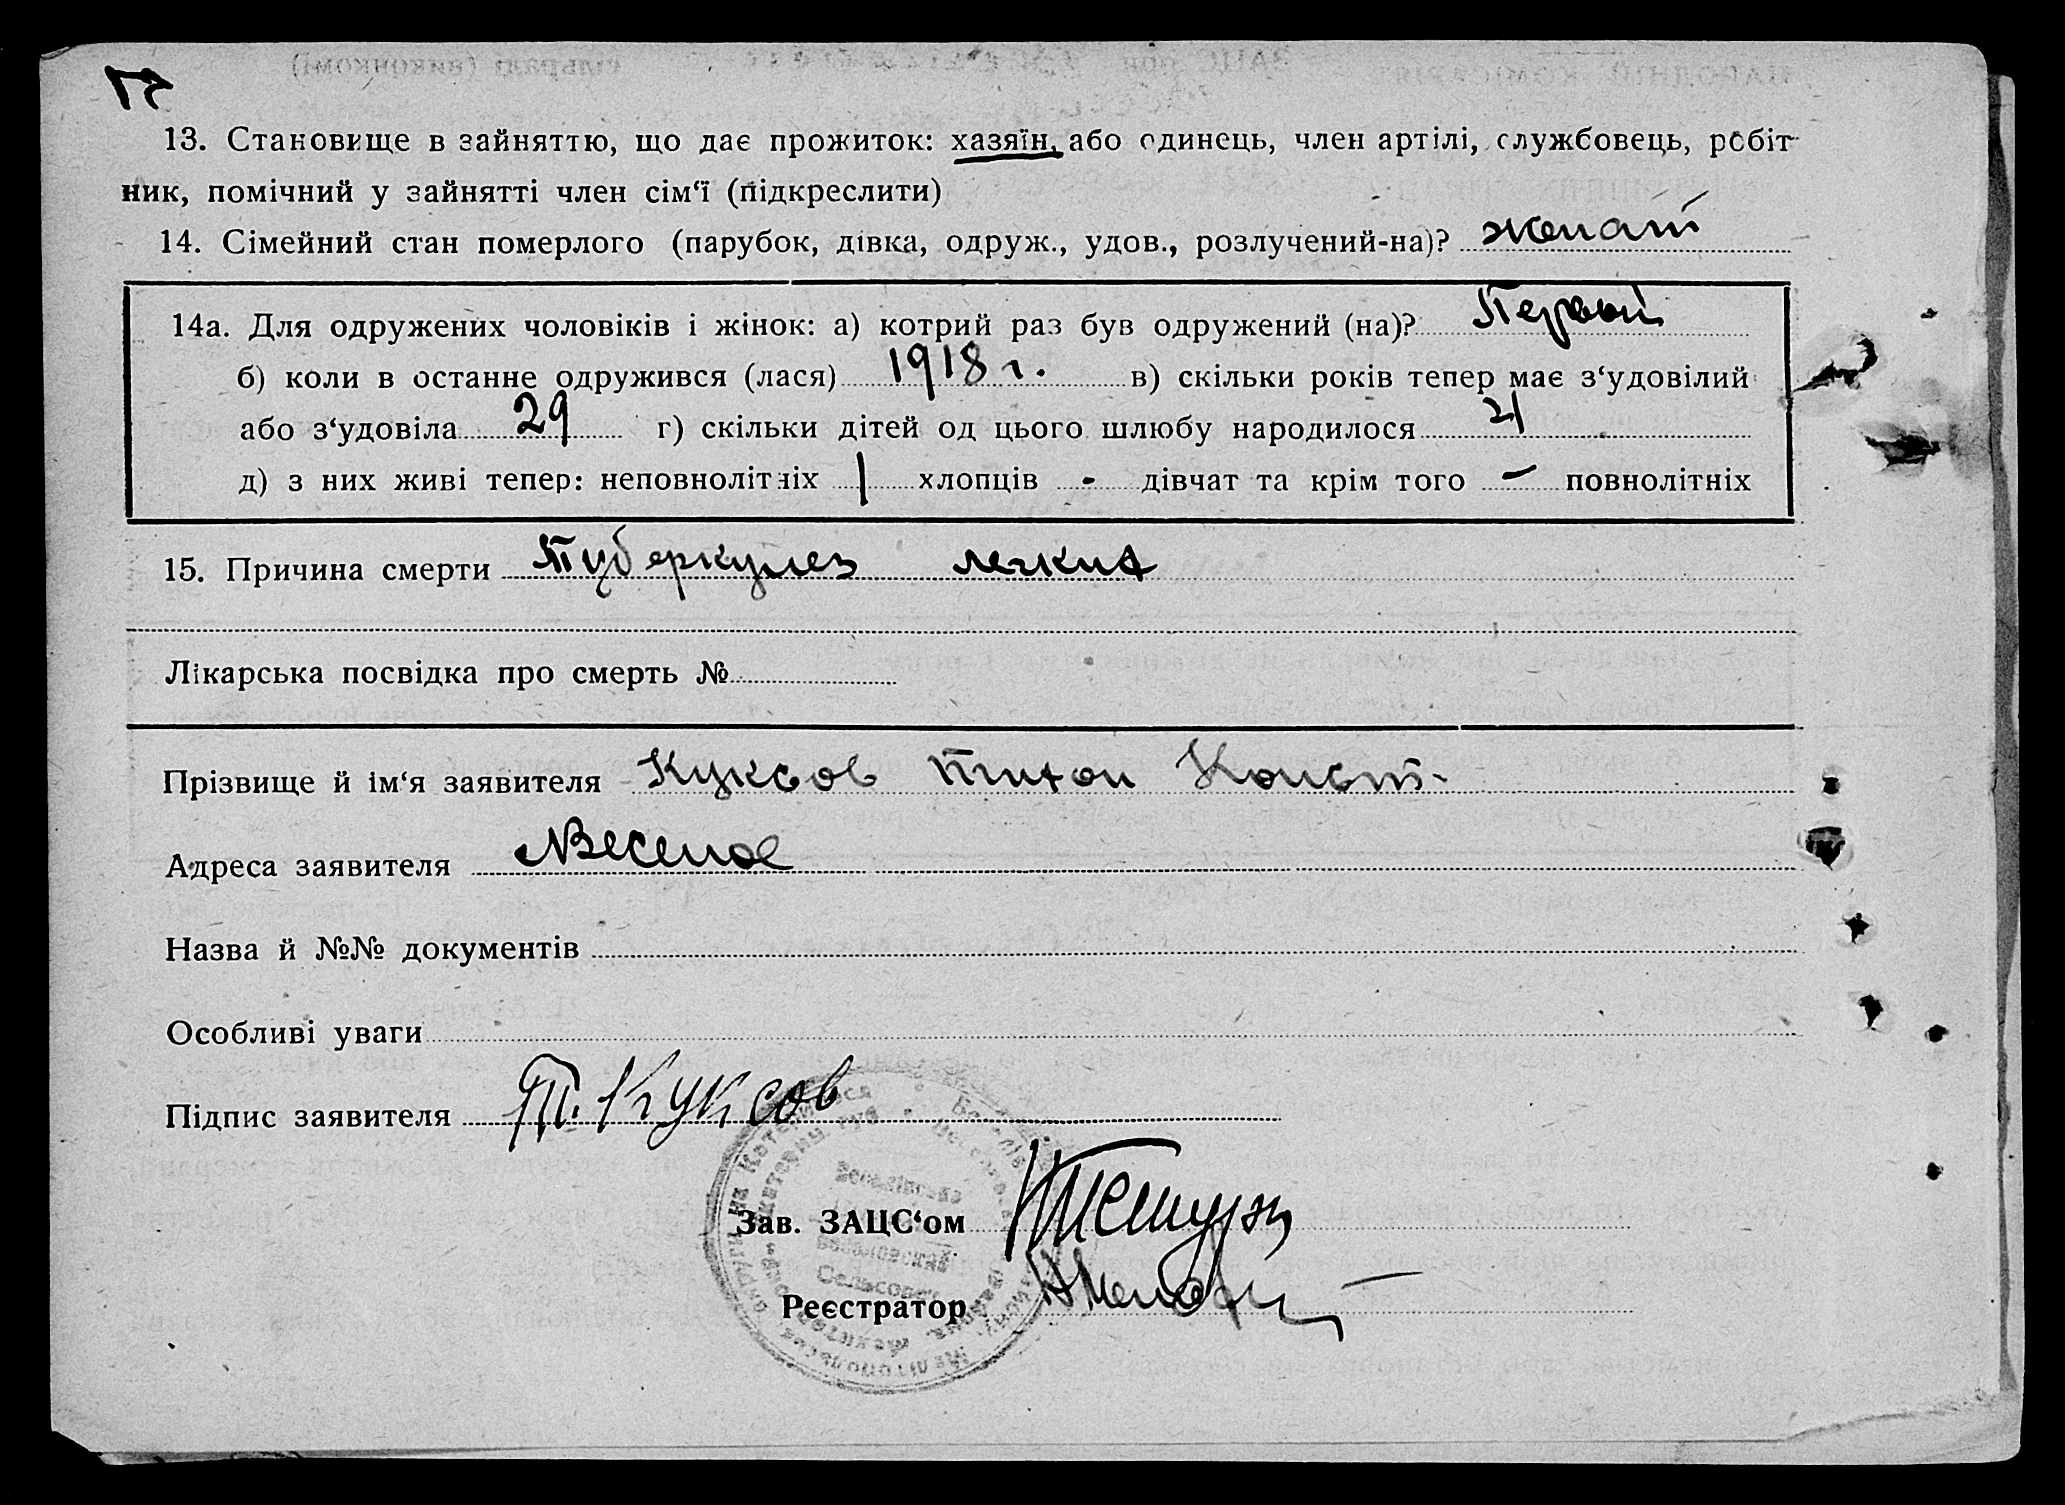 13. Становище в зайняттю, що дає прожиток: хазяїн, або одинець, член артілі, службовець, робіт-
ник, помічний у зайнятті член сім‘ї (підкреслити)
14. Сімейний стан померлого (парубок, дівка, одруж., удов., розлучений-на)? женат
14а. Для одружених чоловіків і жінок: а) котрий раз був одружений (на)? Первый
б) коли в останне одружився (лася) 1918 г. в) скільки років тепер має з‘удовілий
або з‘удовіла 29 г) скільки дітей од цього шлюбу народилося
д) з них живі тепер: неповнолітніх 1 хлопців - дівчат та крім того - повнолітніх
15. Причина смерти Туберкулез легких
Лікарська посвідка про смерть №
Прізвище й ім‘я заявителя Куксов Тихон Конст-
Адреса заявителя Веселое
Назва й №№ документів
Особливі уваги
Підпис заявителя Т. Куксов
Зав. ЗАЦС‘ом
Реєстратор